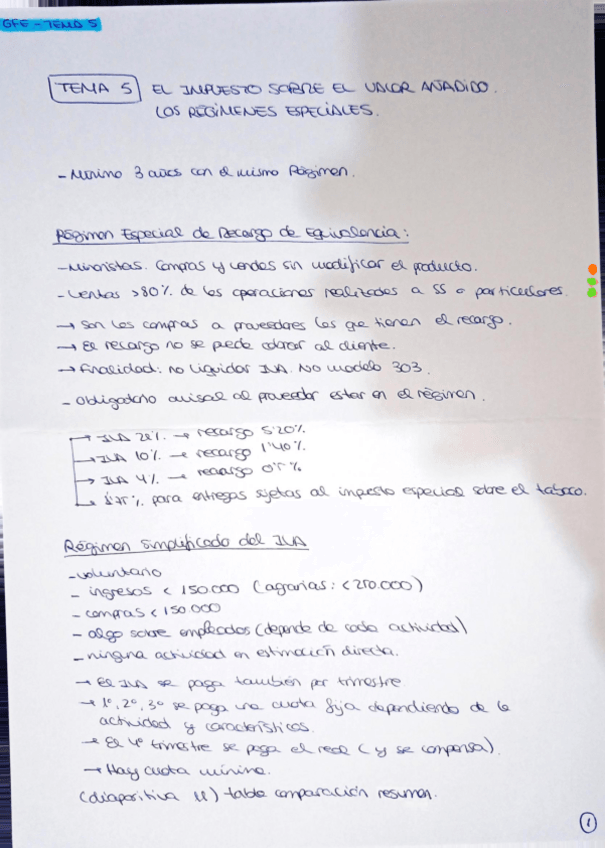 GFE - TEMA 5
TEMA 5 EL IMPUESTO SOBRE EL VALOR AÑADIDO.
LOS REGÍMENES ESPECIALES.
- Mínimo 3 años con el mismo Régimen.
Régimen Especial de Recargo de Equivalencia:
- Minoristas. Compras y vendes sin modificar el producto.
- Ventas >80% de las operaciones realizadas a SS o particulares.
→ Son las compras a proveedores las que tienen el recargo.
→ El recargo no se puede cobrar al cliente.
→ Finalidad: no liquidar IVA. No modelo 303.
- Obligatorio avisar al proveedor estar en el régimen.
→ IVA 21% → recargo 5'20%
→ IVA 10% → recargo 1'40%
→ IVA 4% → recargo 0'5%
→ para entregas sujetas al impuesto especial sobre el tabaco.
Régimen Simplificado del IVA
- voluntario
- ingresos < 150.000 (agrarias: < 250.000)
- compras < 150.000
- algo sobre empleados (depende de cada actividad)
- ninguna actividad en estimación directa.
→ El IVA se paga también por trimestre.
→ 1º, 2º, 3º se paga una cuota fija dependiendo de la
actividad y características.
→ El 4º trimestre se paga el real (y se compensa).
→ Hay cuota mínima.
(diapositiva 11) tabla comparación resumen.
1